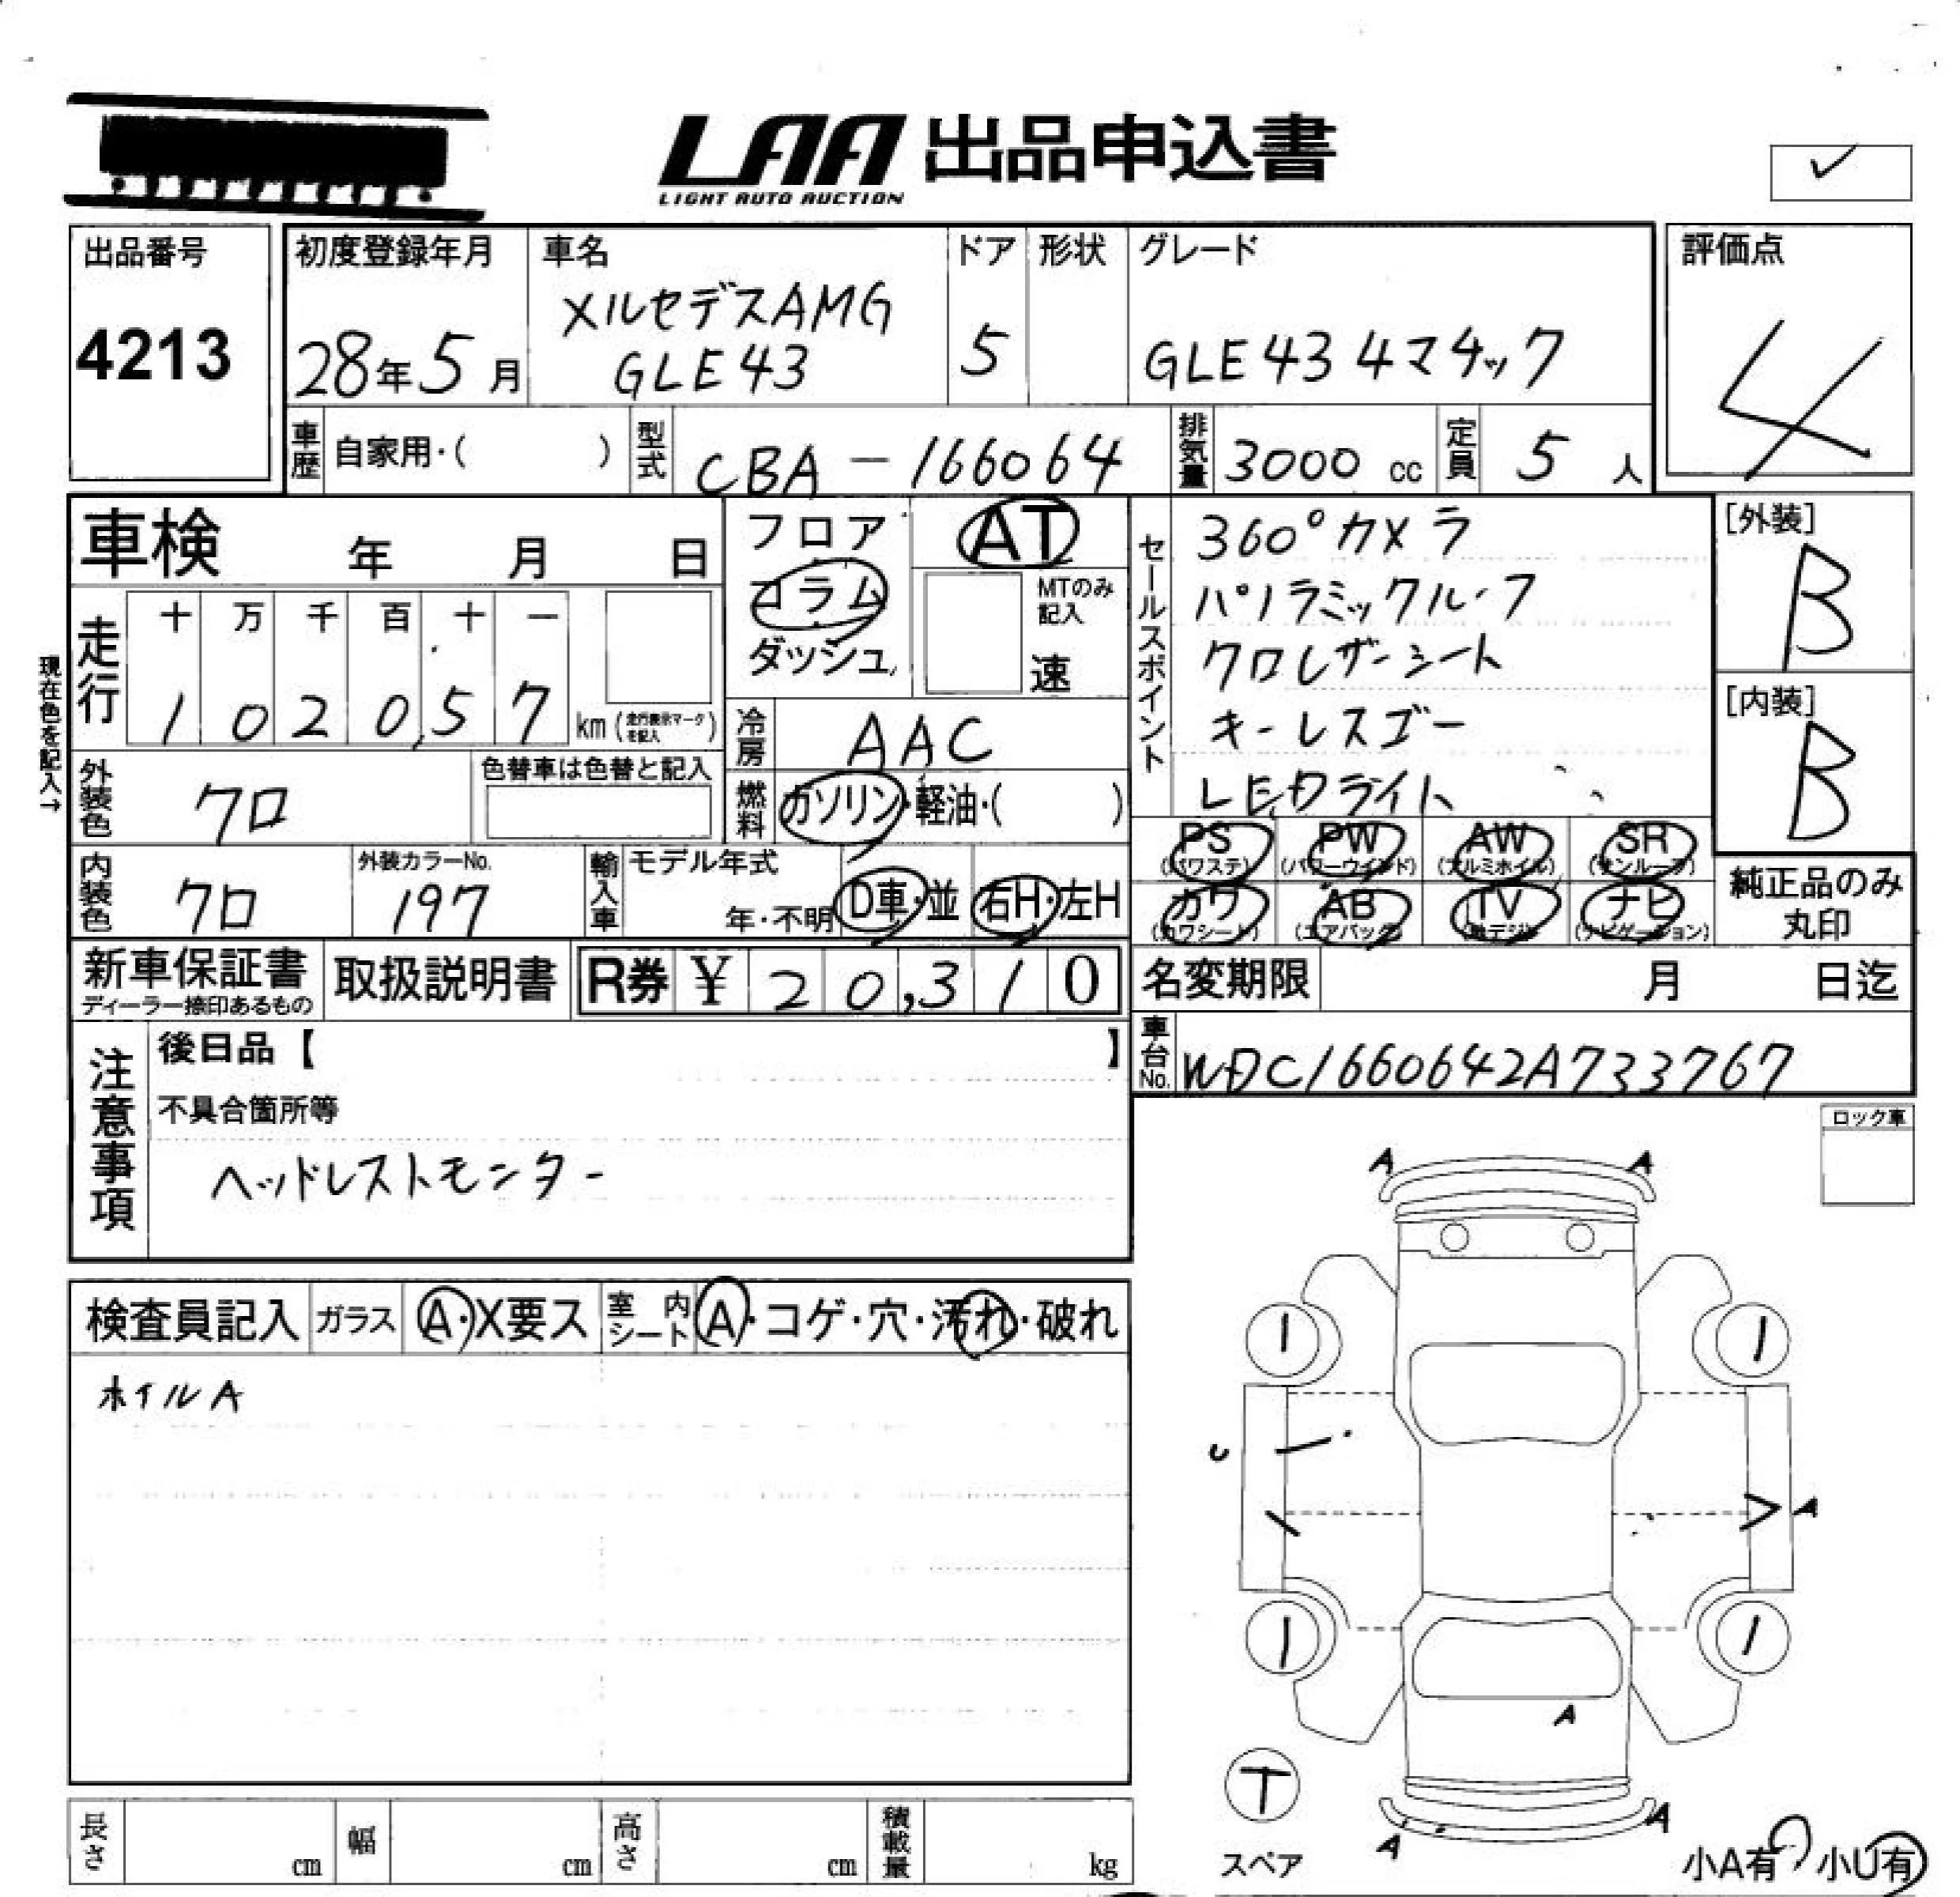 LAA 出品申込書
LIGHT AUTO AUCTION
出品番号
4213
初度登録年月
28年5月
車名
メルセデスAMG
GLE43
ドア
5
形状
グレード
GLE43 4マチック
評価点
4
車歴 自家用・( )
型式 CBA-166064
排気量 3000 cc
定員 5 人
車検 年 月 日
フロア
コラム
ダッシュ
AT
MTのみ
記入
速
セールスポイント
360°カメラ
パノラミックルーフ
クロレザーシート
キーレスゴー
LEDライト
[外装]
B
[内装]
B
現在色を記入→
走行
十 万 千 百 十 一
1 0 2 0,5 7
km (走行表示マークを記入)
冷房 AAC
外装色 クロ
色替車は色替と記入
燃料 ガソリン・軽油・( )
PS (パワステ)
PW (パワーウインド)
AW (アルミホイル)
SR (サンルーフ)
カワ (カワシート)
AB (エアバック)
TV (地デジ)
ナビ (ナビゲーション)
純正品のみ
丸印
内装色 クロ
外装カラーNo.
197
輸入車
モデル年式
年・不明
D車・並
右H・左H
新車保証書
ディーラー捺印あるもの
取扱説明書
R券 ¥ 20,310
名変期限 月 日迄
車台No. WDC1660642A733767
注意事項
後日品【 】
不具合箇所等
ヘッドレストモニター
ロック車
検査員記入
ガラス A・X要ス
室内シート A・コゲ・穴・汚れ・破れ
ホイルA
A
A
A
A
A
A
T
スペア
小A有・小U有
長さ cm
幅 cm
高さ cm
積載量 kg